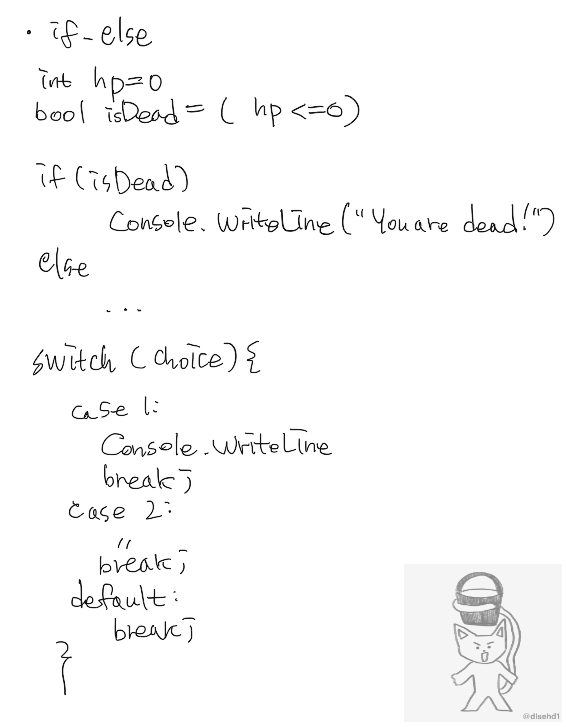 · if-else
int hp=0
bool isDead = ( hp <=0)
if (isDead)
Console.WriteLine("You are dead!")
else
...
switch (choice){
case 1:
Console.WriteLine
break;
case 2:
"
break;
default:
break;
}
@disehd1